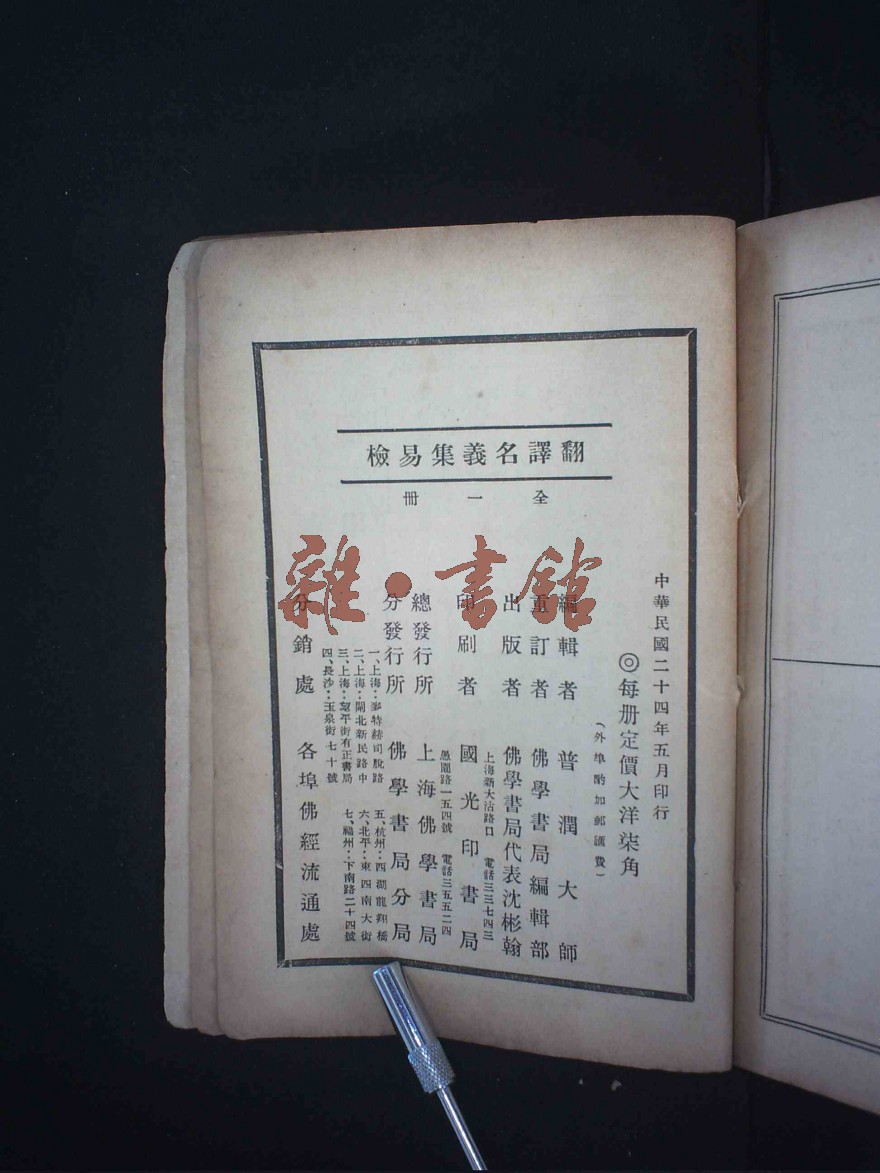 翻譯名義集易檢
全一冊
中華民國二十四年五月印行
◎每册定價大洋柒角
(外埠酌加郵匯費)
編輯者 普潤大師
重訂者 佛學書局編輯部
出版者 佛學書局代表沈彬翰
印刷者 國光印書局
上海新大沽路口 電話三三七四三
總發行所 上海佛學書局
愚園路一五四號 電話三五五二四
分發行所 佛學書局分局
一、上海：麥特赫司脫路
二、上海：閘北新民路中
三、上海：望平街有正書局
四、長沙：玉泉街七十號
五、杭州：西湖龍翔橋
六、北平：東四南大街
七、福州：下南路二十四號
分銷處 各埠佛經流通處
雜·書館